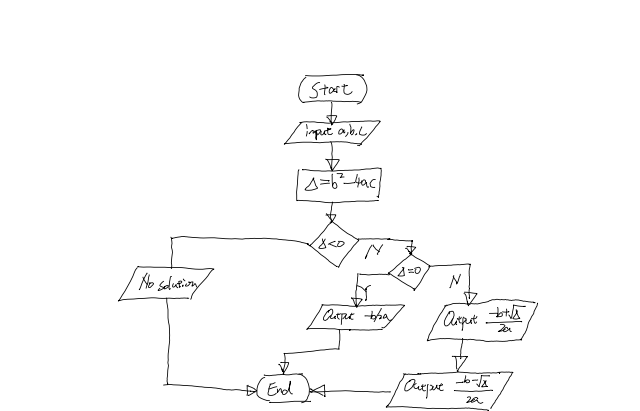 Start
input a,b,c
Δ=b²-4ac
Δ<0
N
Δ=0
N
Y
No solution
Output -b/2a
Output -b+√Δ/2a
End
Output -b-√Δ/2a